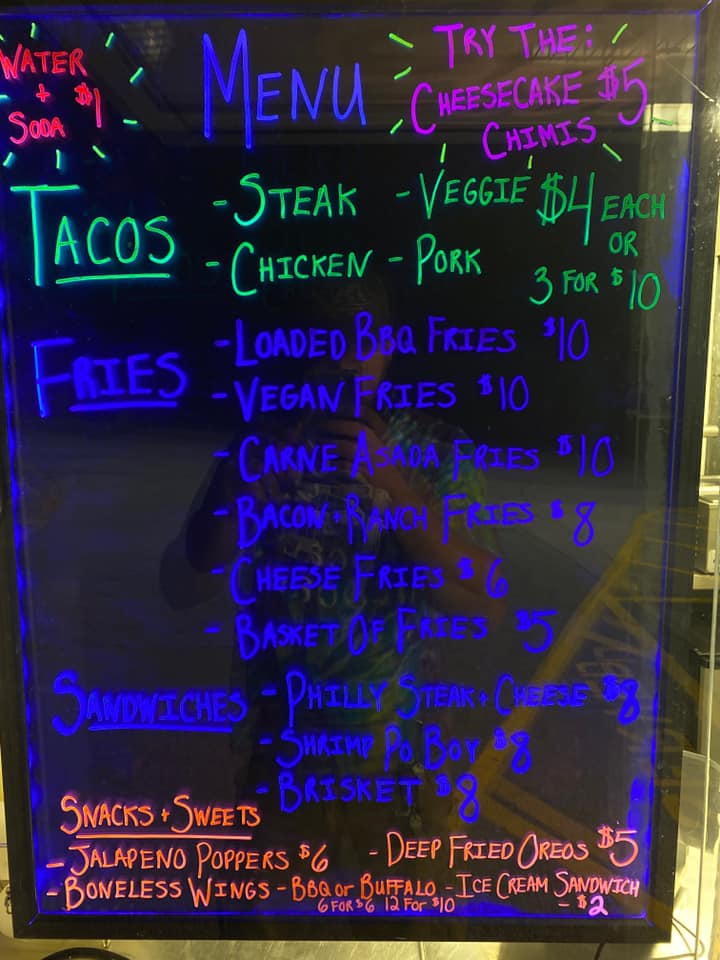 WATER
+ $1
SODA
MENU
TRY THE:
CHEESECAKE $5
CHIMIS
TACOS
- STEAK - VEGGIE $4 EACH
OR
- CHICKEN - PORK 3 FOR $10
FRIES
- LOADED BBQ FRIES $10
- VEGAN FRIES $10
- CARNE ASADA FRIES $10
- BACON + RANCH FRIES $8
- CHEESE FRIES $6
- BASKET OF FRIES $5
SANDWICHES - PHILLY STEAK + CHEESE $8
- SHRIMP PO BOY $8
- BRISKET $8
SNACKS + SWEETS
- JALAPENO POPPERS $6 - DEEP FRIED OREOS $5
- BONELESS WINGS - BBQ or BUFFALO - ICE CREAM SANDWICH
6 FOR $6 12 FOR $10 - $2